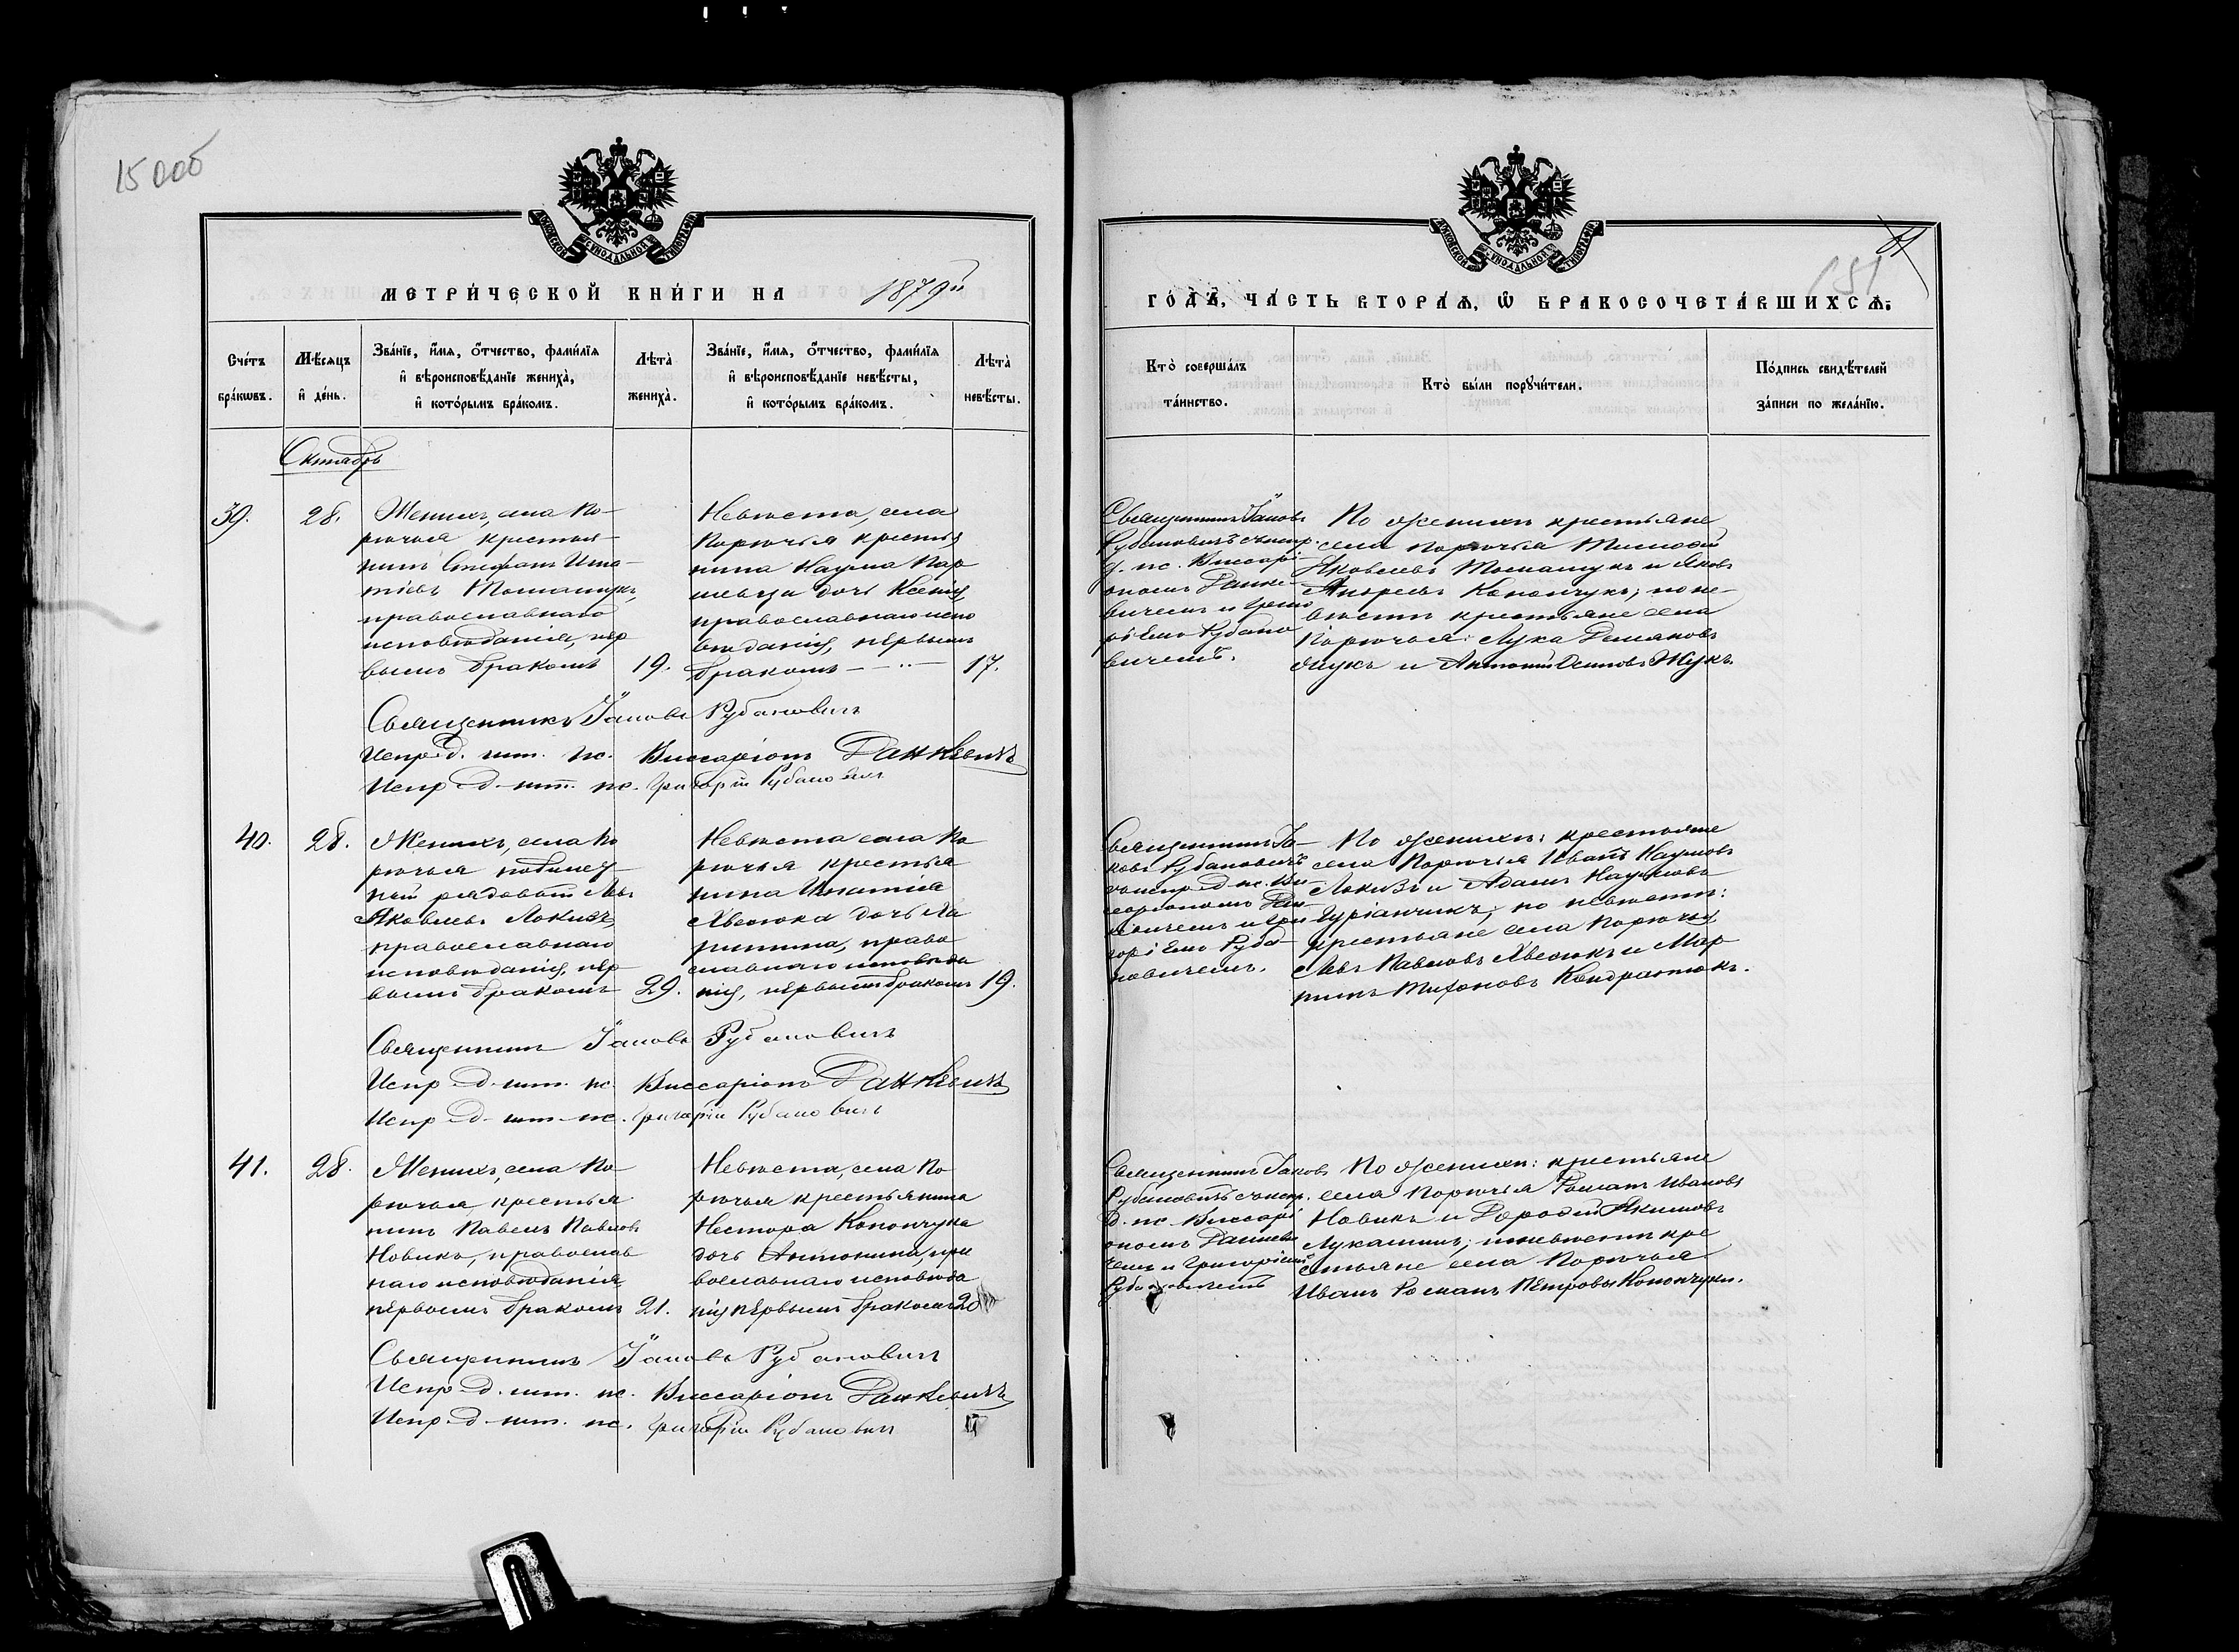 150об
МОСКОВСКОЙ СѴНОДАЛЬНОЙ ТИПОГРАФІИ
МЕТРИ́ЧЕСКОЙ КНИ́ГИ НА 1879й
Сче́тъ бра́кѡвъ.
Мѣ́сяцъ и҆ де́нь.
Зва́нїе, и҆́мѧ, ѻ҆́тчество, фами́лїѧ и҆ вѣроисповѣ́данїе жениха̀, и҆ кото́рымъ бра́комъ.
Лѣта̀ жениха̀.
Зва́нїе, и҆́мѧ, ѻ҆́тчество, фами́лїѧ и҆ вѣроисповѣ́данїе невѣ́сты, и҆ кото́рымъ бра́комъ.
Лѣта̀ невѣ́сты.
Октябрь
39.
28.
Женихъ, села По-
рѣчья крестья-
нинъ Стефанъ Игна-
тіевъ Томашукъ,
православнаго
исповѣданія, пер
вымъ бракомъ
19.
Невѣста, села
Порѣчья крестья
нина Наума Пар
дочь Ксенія,
православнаго испо
вѣданія, первымъ
бракомъ
17.
Священникъ Іаковъ Рубановичъ
Испр. д. шт. пс. Виссаріонъ Данкевичъ
Испр. д. шт. пс. Григорій Рубановичъ
40.
28.
Женихъ, села По
рѣчья
рядовой Левъ
Яковлевъ Локизъ,
православнаго
исповѣданія, пер
вымъ бракомъ
29.
Невѣста села По
рѣчья крестья
нина Игнатія
Хвесюка дочь Ма
рина, право
славнаго исповѣда
нія, первымъ бракомъ
19.
Священникъ Іаковъ Рубановичъ
Испр. д. шт. пс. Виссаріонъ Данкевичъ
Испр. д. шт. пс. Григорій Рубановичъ
41.
28.
Женихъ, села По-
рѣчья, крестья
нинъ Павелъ Павловъ
Новикъ, православ
наго исповѣданія
первымъ бракомъ
21.
Невѣста, села По
рѣчья крестьянина
Нестора Конончука
дочь Антонина, пра
вославнаго исповѣда
нія первымъ бракомъ
20
Священникъ Іаковъ Рубановичъ
Испр. д. шт. пс. Виссаріонъ Данкевичъ
Испр. д. шт. пс. Григорій Рубановичъ
151
МОСКОВСКОЙ СѴНОДАЛЬНОЙ ТИПОГРАФІИ
ГО́ДЪ, ЧА́СТЬ ВТОРА́Ѧ, Ѡ҆ БРАКОСОЧЕТА́ВШИХСѦ:
Кто̀ соверша́лъ та́инство.
Кто̀ бы́ли порꙋчи́тели.
По́дпись свидѣ́телей за́писи по жела́нїю.
Священникъ Іаковъ
Рубановичъ съ испр.
д. пс. Виссарі-
ономъ Данке-
вичемъ и Григо
ріемъ Рубано
вичемъ.
По женихѣ крестьяне
села Порѣчья Тимофей
Яковлевъ Томашукъ и Яковъ
Андреевъ Конончукъ; по не-
вѣстѣ крестьяне села
Порѣчья: Лука Демяновъ
Жукъ и Антоній Осиповъ Жукъ.
Священникъ Іа-
ковъ Рубановичъ
съ испр. д. пс. Ви-
саріономъ Дан-
кевичемъ и Гри
горіемъ Руба-
новичемъ.
По женихѣ: крестьяне
села Порѣчья Иванъ Наумовъ
Локизъ и Адамъ Наумовъ
Гуріанчикъ; по невѣстѣ:
крестьяне села Порѣчья
Левъ Павловъ Хвесюкъ и Мар
тинъ Тихоновъ Кондратюкъ.
Священникъ Іаковъ
Рубановичъ съ испр.
д. пс. Виссарі
ономъ Данкеви
чемъ и Григоріемъ
Рубановичемъ
По женихѣ: крестьяне
села Порѣчья Романъ Ивановъ
Новикъ и Дорофей Якимовъ
Лукашикъ; по невѣстѣ кре
стьяне села Порѣчья
Иванъ Романъ Петровы Конончуки.